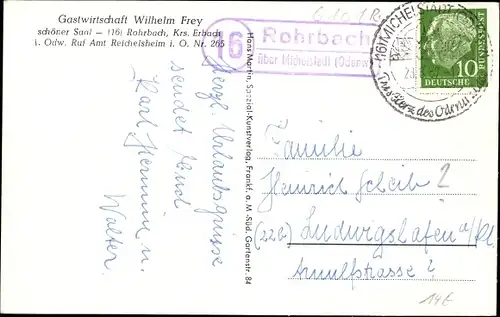 6101R
Gastwirtschaft Wilhelm Frey
schöner Saal — (16) Rohrbach, Krs. Erbach
i. Odw. Ruf Amt Reichelsheim i. O. Nr. 265
6
Rohrbach
über Michelstadt (Odenw)
(16) MICHELSTADT
Das Herz des Odenw
10
DEUTSCHE
BUNDESPOST
Herzl. Urlaubsgrüsse
sendet Euch
Karl, Hermin u.
Walter.
Hans Martin, Spezial-Kunstverlag, Frankf. a. M.-Süd, Gartenstr. 84
Familie
Heinrich Scheib
(22b) Ludwigshafen a/Rh.
Arnulfstrasse
14€